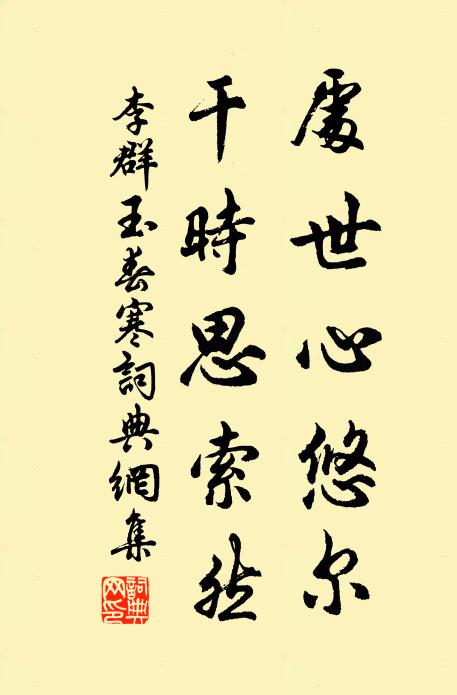 處世心悠尔
干時思索然
李群玉春寒詞典網集
詞典网印